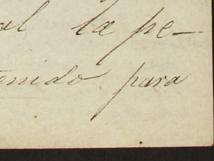 al la pe-
enido para